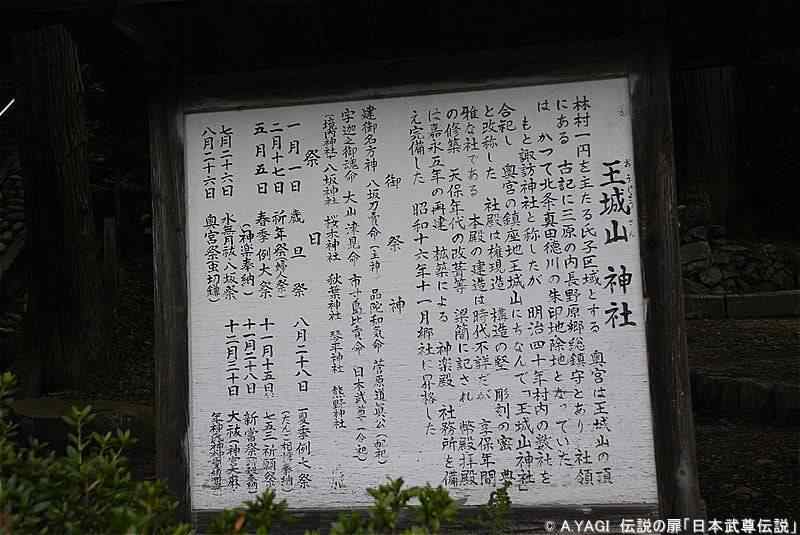 おうじょうざん
王城山 神社
林村一円を主たる氏子区域とする 奥宮は王城山の頂
にある 古記に三原の内長野原郷総鎮守とあり 社領
は かつて北条真田徳川の朱印地除地となっていた
もと諏訪神社と称したが 明治四十年村内の数社を
合祀し 奥宮の鎮座地王城山にちなんで「王城山神社」
と改称した 社殿は権現造 構造の堅 彫刻の密 典
雅な社である 本殿の建造は時代不詳だが 享保年間
の修築 天保年代の改葺等 梁簡に記され 幣殿拝殿
は嘉永五年の再建 拡築による 神楽殿 社務所を備
え完備した 昭和十六年十一月郷社に昇格した
御祭神
建御名方神 八坂刀賣命(主神) 品陀和気命 菅原道真公(配祀)
宇迦之御魂命 大山津見命 市寸島比賣命 日本武尊(合祀)
(境内神社)八坂神社 桜木神社 秋葉神社 琴平神社 熊野神社
祭日
一月一日 歳旦祭 八月二十八日 夏季例大祭
二月十七日 祈年祭 十一月十五日 七五三祈願祭
五月五日 春季例大祭 十一月二十八日 新嘗祭
(神楽奉納) 十二月三十日 大祓
七月二十六日 水無月祓八坂祭
八月二十六日 奥宮祭
© A.YAGI 伝説の扉「日本武尊伝説」